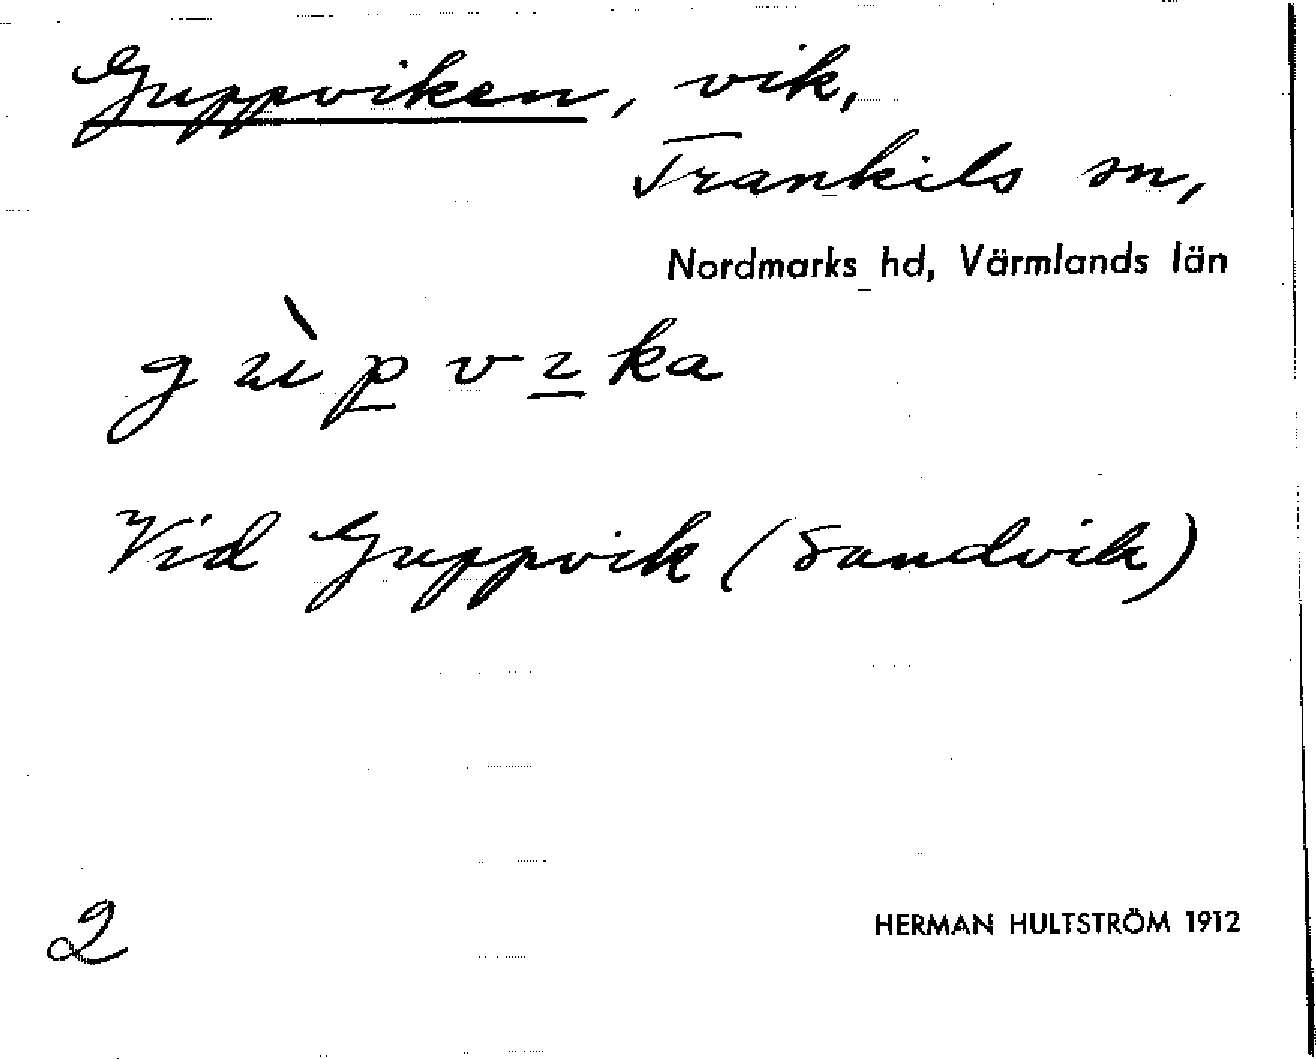 Guppviken, vik,
Trankils sn,
Nordmarks hd, Värmlands län
Vid Guppvik (Sandvik)
2
HERMAN HULTSTRÖM 1912